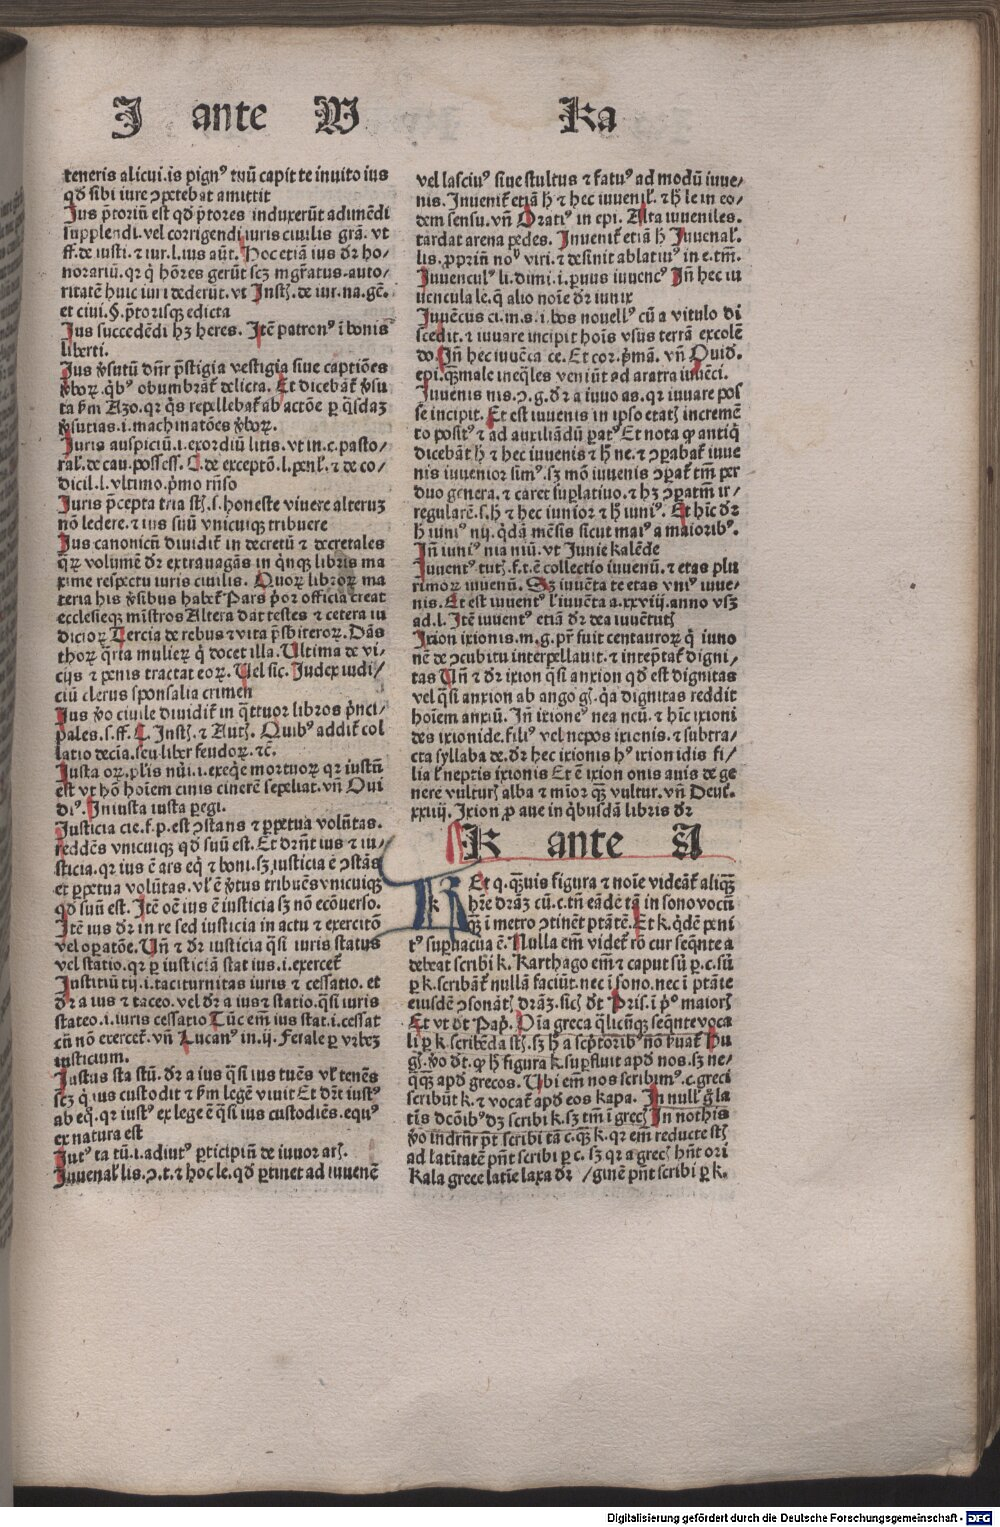 J ante W
Ka
teneris alicui.is pignꝰ tuū capit te inuito ius
qḋ sibi iure ↄpetebat amittit
Jus p̄toriū est qḋ p̄tores induxerūt adiuuēdi
supplendi.vel corrigendi iuris ciuilis grā. vt
ff.de iusti.⁊ iur.l.ius aūt. Hoc etiā ius dr̄ ho/
norariū.qr q̇ hōres gerūt scꝫ mgr̄atus.auto/
ritatē huic iuri dederūt.vt Instꝭ.de iur.na.gē.
et ciui.§.p̄torisqꝫ edicta
Jus succedēdi hꝫ heres. Jtē patronꝰ ī bonis
liberti.
Jus v̄sutū dn̄r p̄stigia vestigia siue captiōes
v̄boꝝ.q̇bꝰ obumbrāt̄ delicta. Et dicebāt̄ v̄su
ta ẜm Azo.qr q̇s repellebat̄ ab actōe ꝑ q̄sdaꝫ
v̄sutias.i.machinatōes v̄boꝝ.
Juris auspiciū.i.exordiū litis.vt in.c.pasto/
ral̄.de cau.possess. C.de exceptō.l.penl̄.⁊ de co/
dicil.l.vltimo.p̄mo rn̄so
Juris p̄cepta tria st̄.s.honeste viuere alteruꝫ
nō ledere.⁊ ius suū vnicuiqꝫ tribuere
Jus canonicū diuidit̄ in decretū ⁊ decretales
q̄ꝝ volumē dr̄ extrauagās in q̇nqꝫ libris ma
xime respectu iuris ciuilis. Quoꝝ libroꝝ ma
teria his v̄sibus habet̄ Pars p̄or officia creat
ecclesieqꝫ mīstros Altera dat testes ⁊ cetera iu
dicioꝝ Tercia de rebus ⁊ vita p̄sbiteroꝝ. Dās
thoꝝ q̄rta mulieꝝ q̇ docet illa. Ultima de vi/
cijs ⁊ penis tractat eoꝝ. Uel sic. Judex iudi/
ciū clerus sponsalia crimen
Jus v̄o ciuile diuidit̄ in q̄ttuor libros p̄nci/
pales.s.ff. C. Instꝭ.⁊ Autꝭ. Quibꝰ addit̄ col
latio decia.seu liber feudoꝝ.⁊c̄.
Justa oꝝ.pl̄is nūi.i.exeq̄e mortuoꝝ qr iustū
est vt hō hoīem cinis cinerē sepeliat.vn̄ Oui
diꝰ. Iniusta iusta peregi.
Justicia cie.f.p.est ↄstans ⁊ ꝑpetua volūtas.
reddēs vnicuiqꝫ qḋ suū est. Et dr̄nt ius ⁊ iu/
sticia.qr ius ē ars eq̇ ⁊ boni.sꝫ iusticia ē ↄstās
et ꝑpetua volūtas. vl̄ ē v̄tus tribuēs vnicuiqꝫ
qḋ suū est. Jtē oē ius ē iusticia sꝫ nō ecōuerso.
Jtē ius dr̄ in re sed iusticia in actu ⁊ exercitō
vel oꝑatōe. Un̄ ⁊ dr̄ iusticia q̄si iuris status
vel statio.qr ꝑ iusticiā stat ius.i.exercet̄
Justitiū tij.i.taciturnitas iuris ⁊ cessatio. et
dr̄ a ius ⁊ taceo. vel dr̄ a ius ⁊ statio.q̄si iuris
stateo.i.iuris cessatio Tūc em̄ ius stat.i.cessat
cū nō exercet̄.vn̄ Lucanꝰ in.ij. Ferale ꝑ vrbeꝫ
iusticium.
Justus sta stū.dr̄ a ius q̄si ius tuēs vl̄ tenēs
scꝫ q̇ ius custodit ⁊ ẜm legē viuit Et dr̄t iustꝰ
ab eq̇.qr iustꝰ ex lege ē q̄si ius custodiēs.equꝰ
ex natura est
Jutꝰ ta tū.i.adiutꝰ ꝑticipiū de iuuor arꝭ.
Juuenal̄ lis.ↄ.t.⁊ hoc le.qḋ ꝑtinet ad iuuenē
vel lasciuꝰ siue stultus ⁊ fatuꝰ ad modū iuue/
nis. Inuenit̄ etiā h̄ ⁊ hec iuuenil̄.⁊ h̄ le in eo/
dem sensu. vn̄ Oratiꝰ in epi. Alta iuueniles.
tardat arena pedes. Inuenit̄ etiā h̄ Juuenal̄.
lis.ꝓpriū noꝰ viri.⁊ desinit ablatiuꝰ in e.tm̄.
Juuenculꝰ li.dimi.i.paruus iuuencꝰ In̄ hec iu
uencula le.q̄ alio noīe dr̄ iunix
Juuēcus ci.m.s.i.bos nouellꝰ cū a vitulo di
scedit.⁊ iuuare incipit hoīs vsus terrā excolē
do. In̄ hec iuuēca ce. Et cor.p̄mā. vn̄ Ouid.
epi.q̄ꝫmale ineq̄les veniūt ad aratra iuuēci.
Juuenis nis.ↄ.g.dr̄ a iuuo as.qr iuuare pos
se incipit. Et est iuuenis in ipso etatꝭ incremē
to positꝰ ⁊ ad auxiliādū ꝑatꝰ Et nota ꝙ antiq̇
dicebāt h̄ ⁊ hec iuuenis ⁊ h̄ ne.⁊ ↄꝑabat̄ iuue
nis iuuenior simꝰ.sꝫ mō iuuenis ↄꝑat̄ tm̄ per
duo genera.⁊ caret suꝑlatiuo.⁊ hꝫ ↄꝑatm̄ ir/
regularē.s.h̄ ⁊ hec iunior ⁊ h̄ iuniꝰ. Et hīc dr̄
h̄ iuniꝰ nij.q̇dā mēsis sicut maiꝰ a maioribꝰ.
In̄ iuniꝰ nia niū.vt Junie kalēde
Juuentꝰ tutꝭ.f.t.ē collectio iuuenū.⁊ etas plu
rimoꝝ iuuenū. Sꝫ iuuēta te etas vniꝰ iuue/
nis. Et est iuuentꝰ l̄ iuuēta a.xxviij.anno vsꝫ
ad.l. Jtē iuuentꝰ etiā dr̄ dea iuuētutꝭ
Jxion ixionis.m.g.pr̄ fuit centauroꝝ q̇ iuno
nē de ↄcubitu interpellauit.⁊ intep̄tat̄ digni/
tas Un̄ ⁊ dr̄ ixion q̄si anxion qḋ est dignitas
vel q̄si anxion ab ango gꝭ.q̇a dignitas reddit
hoīem anxiū. In̄ ixioneꝰ nea neū.⁊ hīc ixioni
des ixionide.filiꝰ vel nepos ixionis.⁊ subtra/
cta syllaba de.dr̄ hec ixionis hꝰ ixionidis fi/
lia l̄ neptis ixionis Et ē ixion onis auis de ge
nere vulturꝭ alba ⁊ mīor q̄ꝫ vultur. vn̄ Deut̄.
xxiiij. Jxion ꝓ aue in q̇busdā libris dr̄
K ante A
K Et q.q̄ꝫuis figura ⁊ noīe videāt̄ aliq̄ꝫ
hr̄e dr̄aꝫ cū.c.tn̄ eādē tā in sono vocū
q̄ꝫ ī metro ↄtinēt ptātē. Et k.q̇dē peni
tꝰ suꝑuacua ē. Nulla em̄ videt̄ rō cur seq̄nte a
debeat scribi k. Karthago em̄ ⁊ caput sū ꝑ.c.sū
ꝑ k.scribāt̄ nullā faciūt.nec ī sono.nec ī ptāte
eiusdē ↄsonātꝭ dr̄aꝫ.sicꝭ dt̄ Pris.ī p̊ maiorꝭ
Et vt dt̄ Pap̄. Oīa greca q̄licūqꝫ seq̄nte voca
li ꝑ k.scribēda st̄.sꝫ h̄ a scptoribꝰ nō ẜuat̄ Hu
gꝭ.v̄o dt̄.ꝙ h̄ figura k.suꝑfluit apḋ nos.sꝫ ne/
q̄qꝫ apḋ grecos. Ubi em̄ nos scribimꝰ.c.greci
scribūt k.⁊ vocat̄ apḋ eos kapa. In nullꝭ g̊ la
tīs dcōibꝰ dꝫ scribi k.sꝫ tm̄ ī grecꝭ In nothis
v̄o indr̄nr p̄t scribi tā c.q̄ꝫ k.qr em̄ reducte st̄
ad latītatē pn̄t scribi ꝑ c.sꝫ qr a grecꝭ hn̄t ori
Kala grece latīe laxa dr̄ /ginē pn̄t scribi ꝑ k.
Digitalisierung gefördert durch die Deutsche Forschungsgemeinschaft - DFG